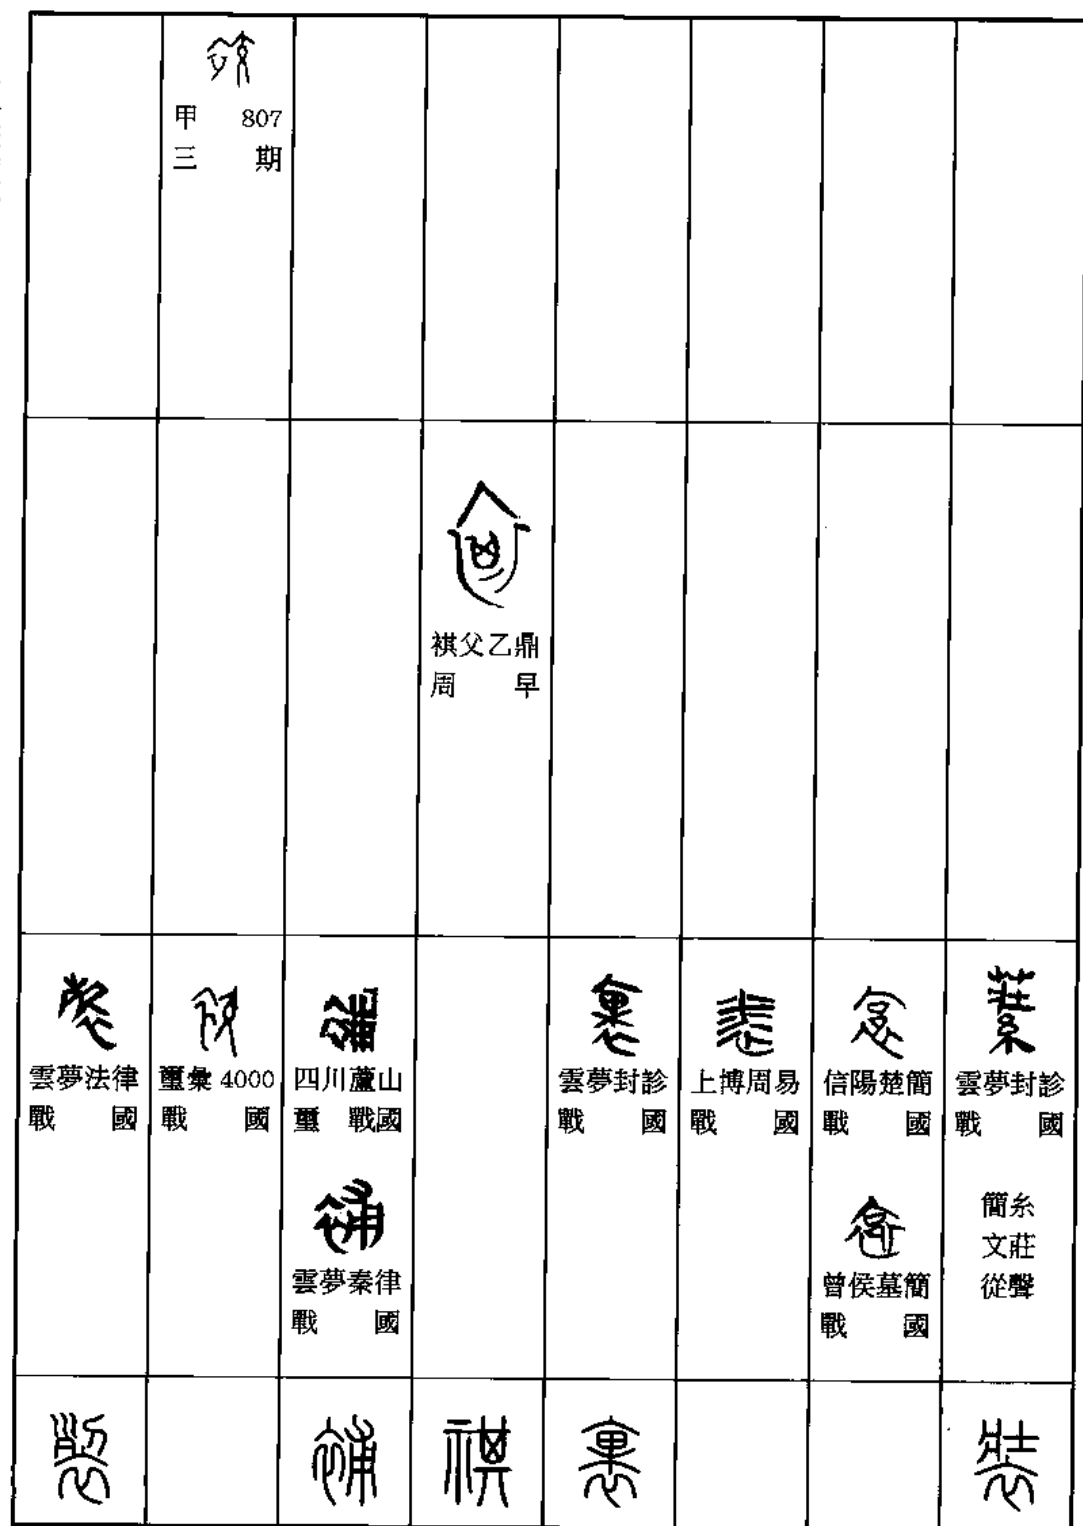 甲 807
三期
褀父乙鼎
周早
雲夢法律
戰國
璽彙 4000
戰國
四川蘆山
璽 戰國
雲夢秦律
戰國
雲夢封診
戰國
上博周易
戰國
信陽楚簡
戰國
曾侯墓簡
戰國
雲夢封診
戰國
簡文從
糸莊聲
裂
補
褀
裹
裝